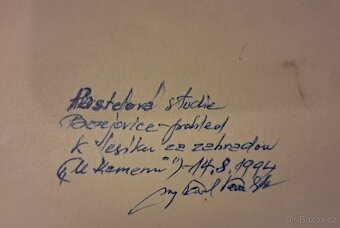 Pastelová studie
Bezejovice - pohled
k lesíku za zahradou
("U kamenů") - 14.8.1994
© Bazos.cz